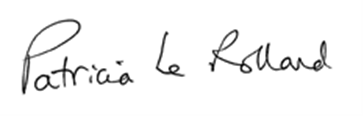 Patricia Le Rolland